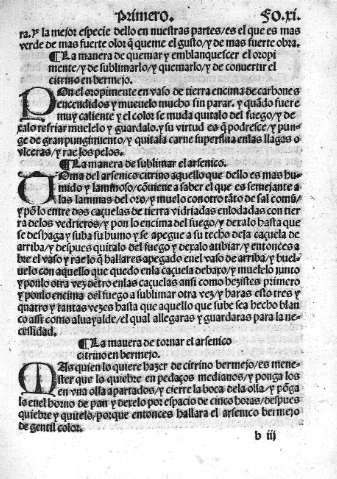 Primero. Fo.xi.
ra. y la mejor especie dello en nuestras partes/es el que es mas
verde de mas fuerte olor q̃ queme el gusto/y de mas fuerte obra.
¶ La manera de quemar y emblanquescer el oropi
miente/y de sublimarlo/y quemarlo/y de conuertir el
citrino en bermejo.
POn el oropimente en vaso de tierra encima de carbones
encendidos y mueuelo mucho sin parar. y quãdo fuere
muy caliente y el color se muda quitalo del fuego/y de
xalo resfriar muelelo y guardalo. y su virtud es q̃ podresce/y pun
ge de gran pungimiento/y quita la carne superflua en las llagas o
vlceras/y rae los pelos.
¶ La manera de sublimar el arsenico.
TOma del arsenico citrino aquello que dello es mas hu
mido y laminoso/cõuiene a saber el que es semejante a
las laminas del oro/y muelo con otro tãto de sal comũ/
y põ lo entre dos caçuelas de tierra vidriadas enlodadas con tier
ra delos vedrieros/y pon lo encima del fuego/y dexalo hasta que
se deshaga/y suba su humo y se apegue a su techo dela caçuela de
arriba/y despues quitalo del fuego y dexalo atibiar/y entonces a
bre el vaso y rae lo q̃ hallares apegado enel vaso de arriba/y buel
uelo con aquello que quedo enla caçuela debaxo/y muelelo junto
y ponlo otra vez dẽtro enlas caçuelas ansi como hezistes primero
y ponlo encima del fuego a sublimar otra vez/y haras esto tres y
quatro y tantas vezes hasta que aquello que sube sea hecho blan
co assi como aluayalde/el qual allegaras y guardaras para la ne
cessidad.
¶ La manera de tornar el arsenico
citrino en bermejo.
MAs quien lo quiere hazer de citrino bermejo/es mene
ster que lo quiebre en pedaços medianos/y ponga los
en vna olla apartados/y cierre la boca dela olla/y põga
lo enel horno de pan y dexelo por espacio de cinco horas/despues
quiebre y quitelo/porque entonces hallara el arsenico bermejo
de gentil color.
b iii